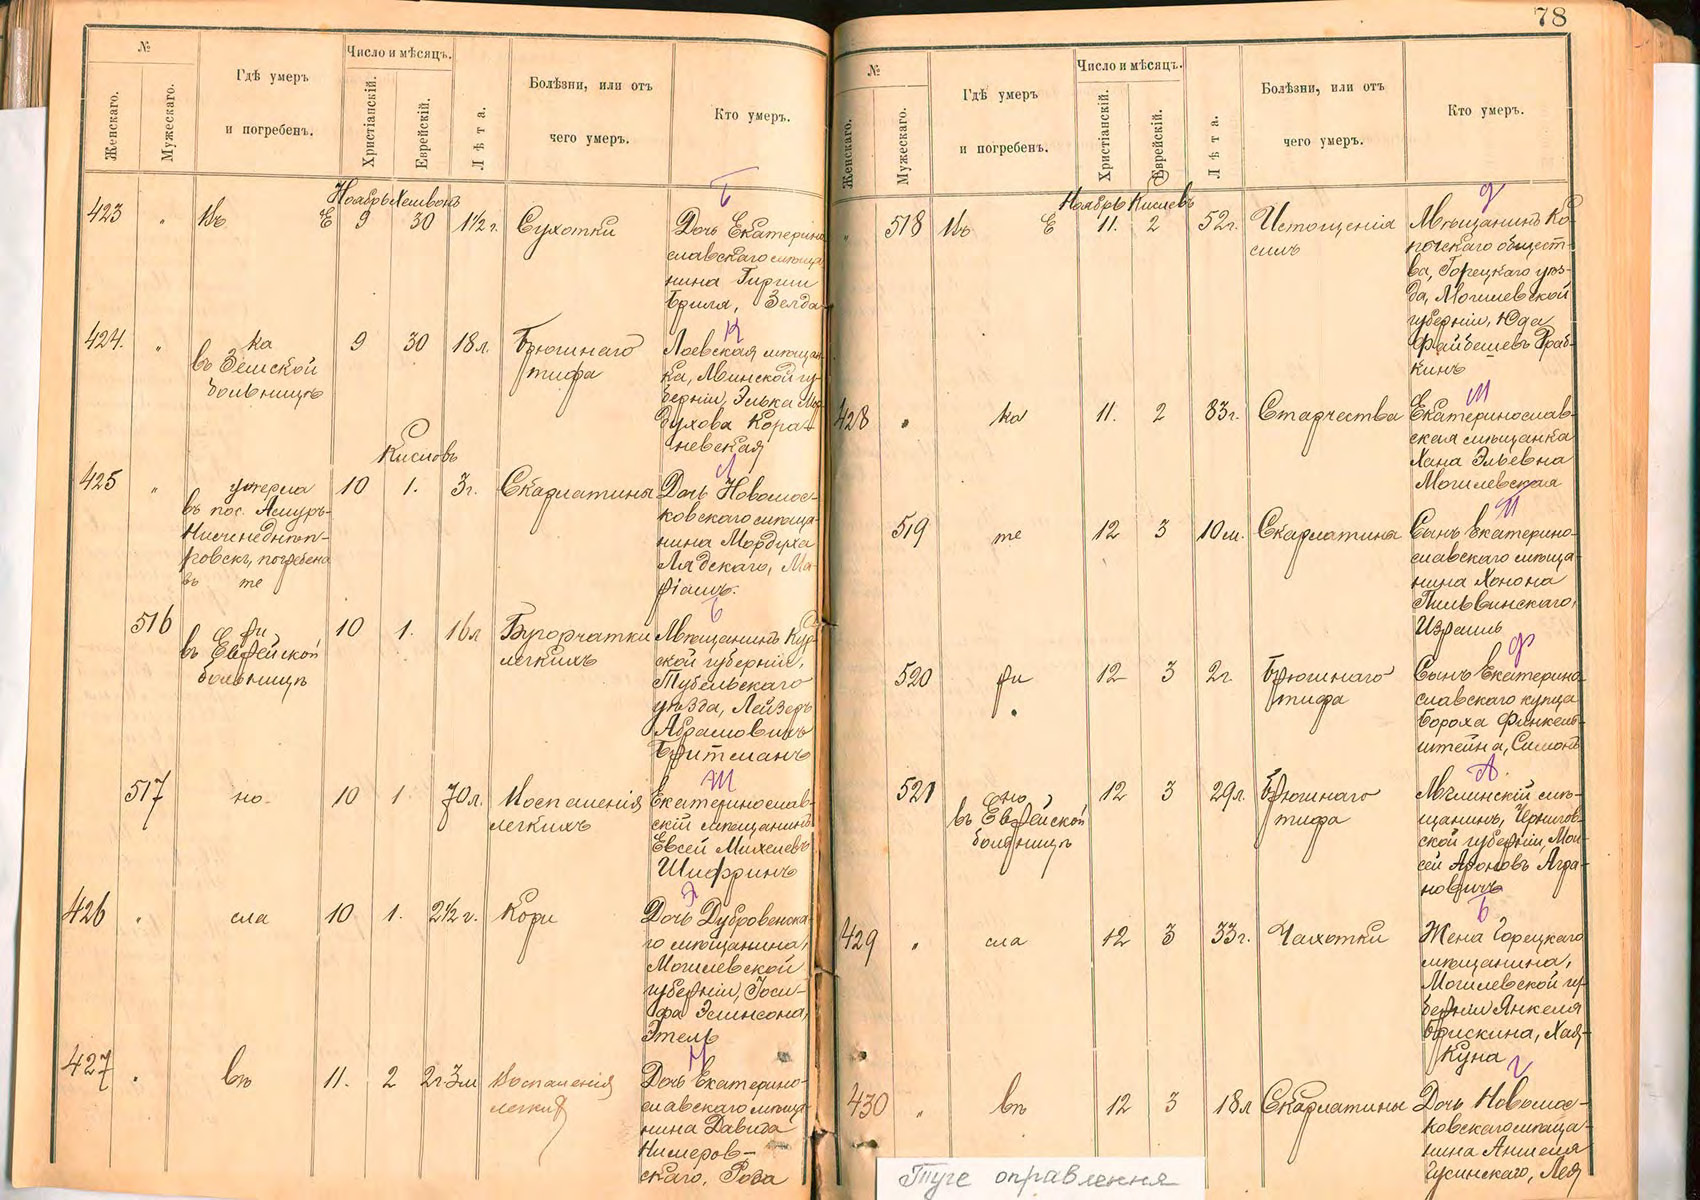 №
Женскаго.
Мужескаго.
Гдѣ умеръ
и погребенъ.
Число и мѣсяцъ.
Христіанскій.
Еврейскій.
Лѣта.
Болѣзни, или отъ
чего умеръ.
Кто умеръ.
Ноябрь Хешвонъ
Б
423 " Въ Е 9 30 1½ г. Сухотки
Дочь Екатерино
славскаго мѣща
нина Гирши
Бриля, Зелда
К
424. " ка 9 30 18 л. Брюшнаго
въ Земской
больницѣ
тифа
Лоевская мѣщан-
ка, Минской гу-
берніи, Элька Мор
духова Кора-
невская
Кислевъ
Л
425 " умерла 10 1. 3 г. Скарлатины
въ пос. Амуръ-
Нижнеднѣп-
ровскъ, погребена
въ те
Дочь Новомос-
ковскаго мѣща
нина Мордуха
Лядскаго, Ма-
ріамъ.
Б
516 ри 10 1. 16 л Бугорчатки
въ Еврейской
больницѣ
легкихъ
Мѣщанинъ Кур
ской губерніи,
уѣзда, Лейзеръ
Абрамовичъ
Бритманъ
Ш
517 но. 10 1. 70 л. Воспаленія
легкихъ
Екатеринослав-
скій мѣщанинъ
Евсей Михелевъ
Шифринъ
Э
426 " сла 10 1. 2½ г. Кори
Дочь Дубровенска-
го мѣщанина,
Могилевской
губерніи, Іоси-
фа Эслинсона,
Этель
Н
427 " въ 11. 2 2 г 3 м Воспаленія
легкихъ
Дочь Екатерино-
славскаго мѣща-
нина Давида
Нимеров-
скаго, Рода
78
№
Женскаго.
Мужескаго.
Гдѣ умеръ
и погребенъ.
Число и мѣсяцъ.
Христіанскій.
Еврейскій.
Лѣта.
Болѣзни, или отъ
чего умеръ.
Кто умеръ.
Ноябрь Кислевъ
" 518 Въ Е 11. 2 52 г. Истощенія
силъ
Мѣщанинъ Ко-
пысскаго общест-
ва, Горецкаго уѣз-
да, Могилевской
губерніи, Юда
Файбешевъ Драб-
кинъ
М
428 " ка 11. 2 83 г. Старчества
Екатеринослав-
ская мѣщанка
Хана Эльевна
Могилевская
П
519 те 12 3 10 м. Скарлатина
Сынъ Екатерино-
славскаго мѣща-
нина Хонона
Пильвинскаго,
Израиль
Ф
520 ри 12 3 2 г. Брюшнаго
тифа
Сынъ Екатерино
славскаго купца
Бороха Финкель-
штейна, Симонъ
А
521 но 12 3 29 л. Брюшнаго
въ Еврейской
больницѣ
тифа
Мглинскій мѣ-
щанинъ, Чернигов-
ской губерніи, Мои-
сей Ароновъ Агра-
новичъ
Б
429 " сла 12 3 33 г. Чахотки
Жена Горецкаго
мѣщанина,
Могилевской гу-
берніи Янкеля
Брискина, Хая-
Куна
Г
430 " въ 12 3 18 л Скарлатины
Дочь Новомос-
ковскаго мѣща-
нина Аншеля
Гусинскаго, Лея
Туге оправлення